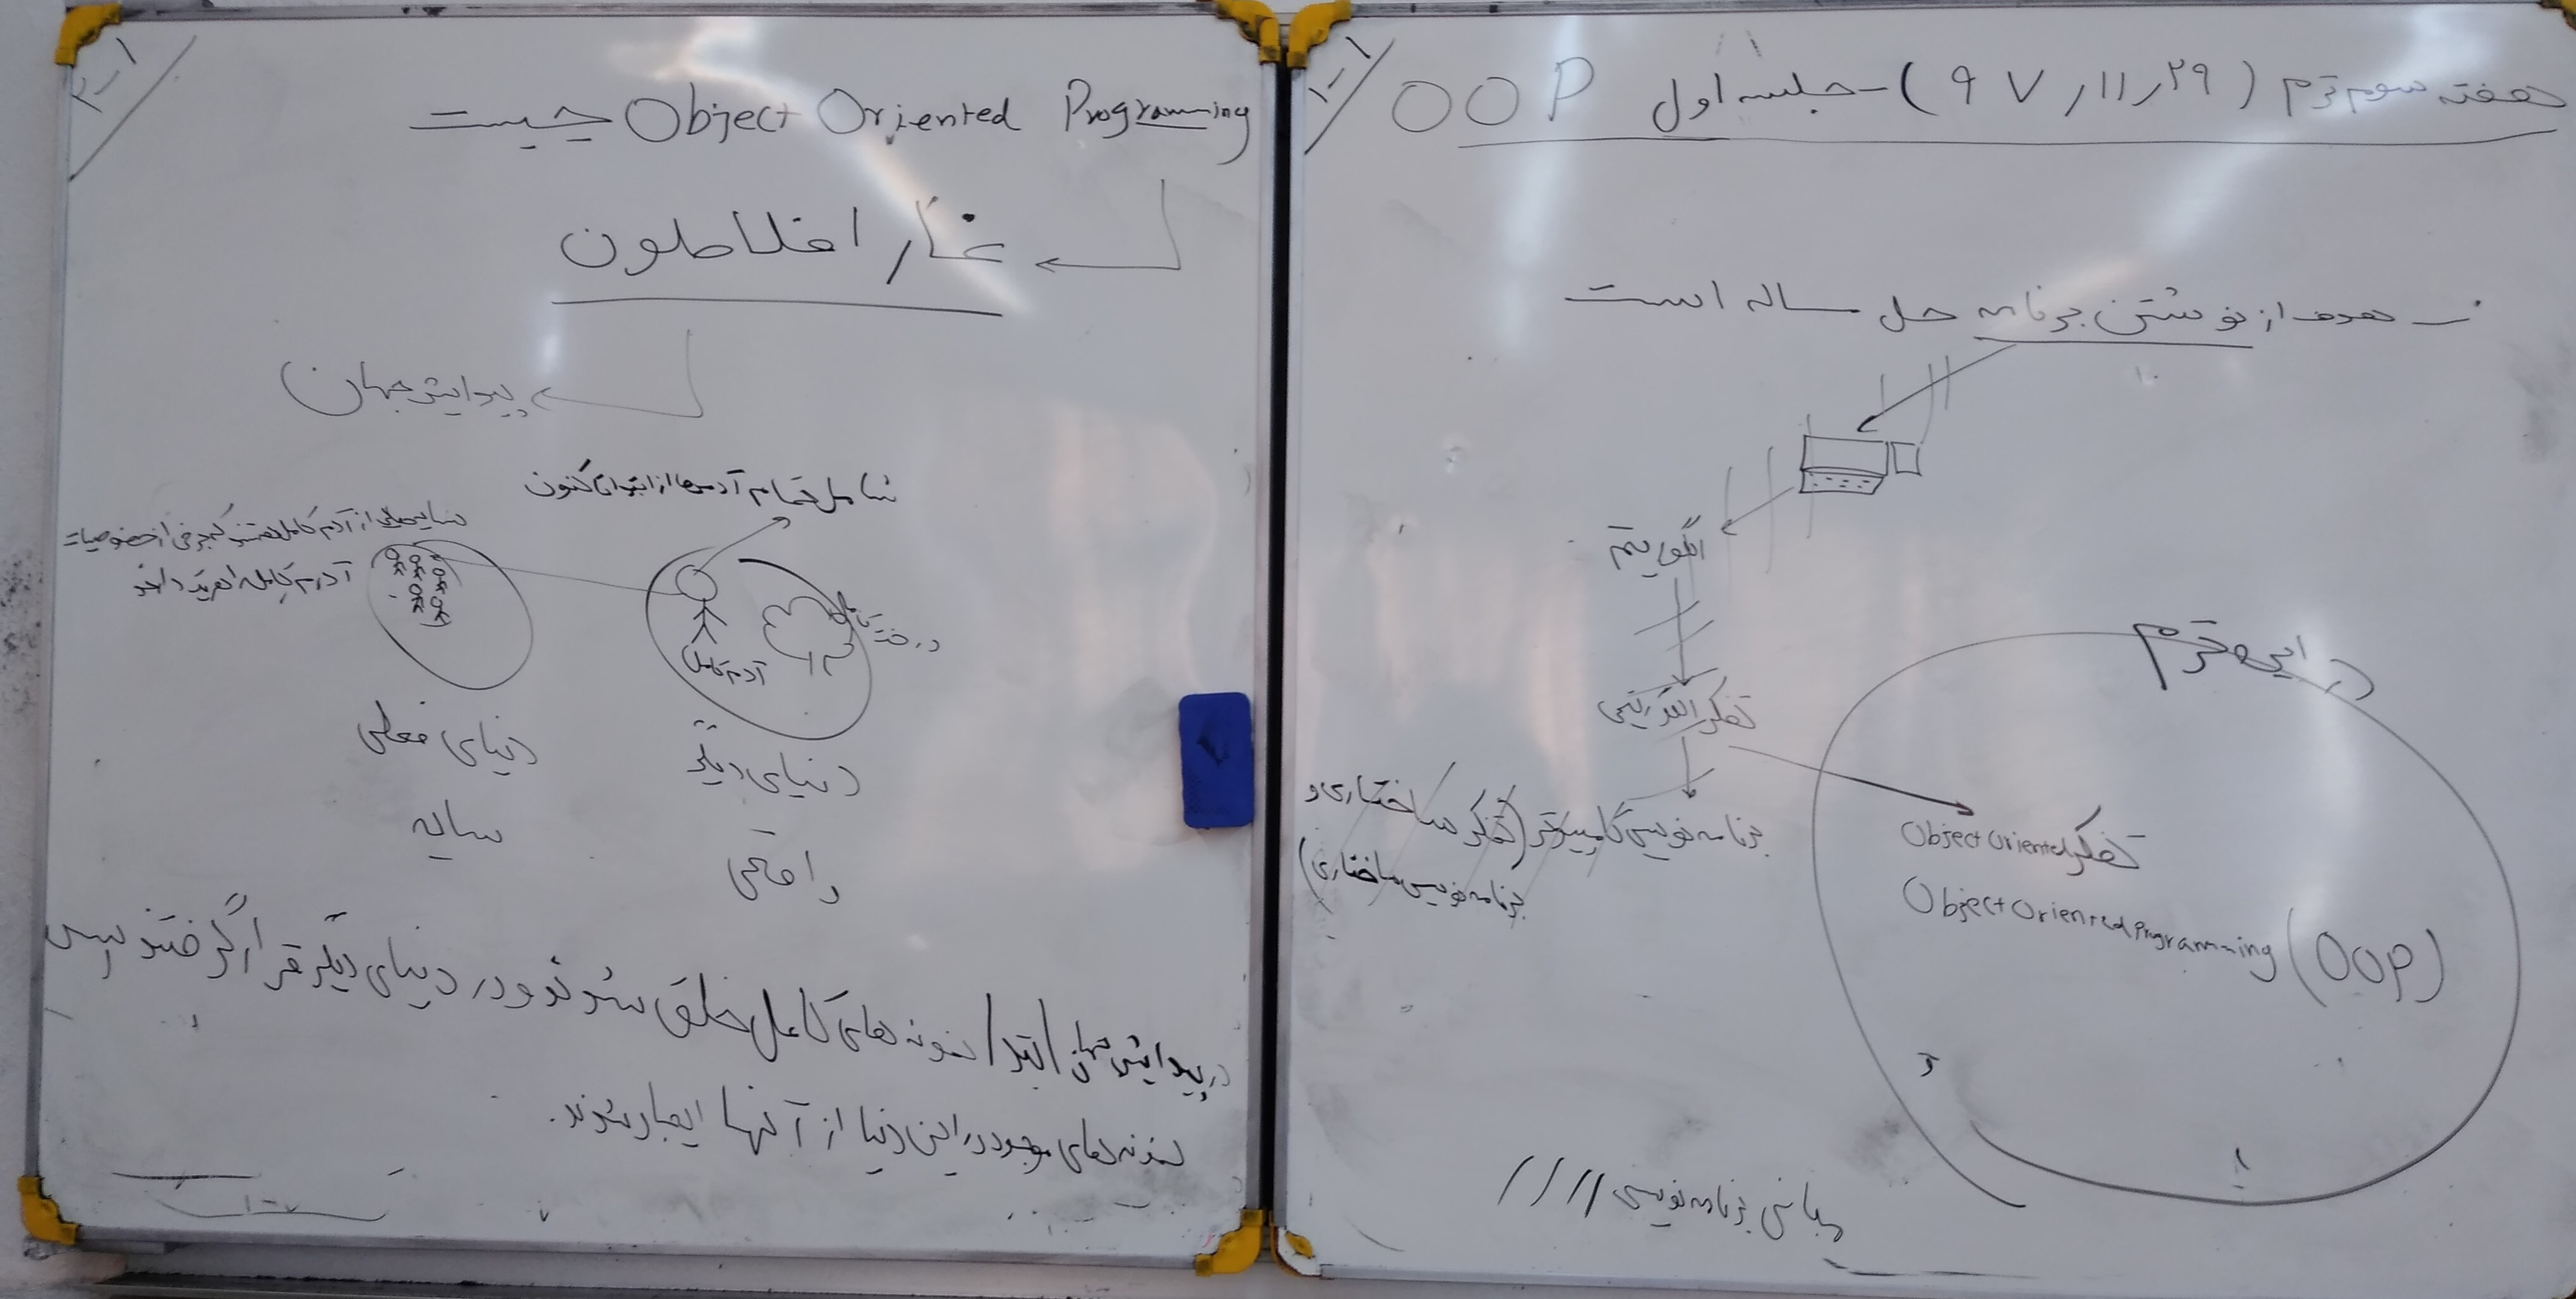 هفته سوم ترم (۹۷/۱۱/۲۹) - جلسه اول OOP
۱-۱
- هدف از نوشتن برنامه حل ساله است
الگوریتم
تفکر الگوریتمی
برنامه نویسی کامپیوتر (تفکر ساختاری و
برنامه نویسی ساختاری)
در این ترم
تفکر Object Oriented
Object Oriented Programming (OOP)
مبانی برنامه نویسی
۲-۱
Object Oriented Programming چیست
غار افلاطون
پیدایش جهان
شامل تمام آدم‌ها از ابتدا تا کنون
سایه‌هایی از آدم کامل هستند که برخی از خصوصیات
آدم کامل را هریک دارند
درخت
آدم کامل
دنیای دیگر
واقعی
دنیای فعلی
سایه
در پیدایش جهان ابتدا نمونه های کامل خلق شوند و در دنیای دیگر قرار گرفتند سپس
نمونه های موجود در این دنیا از آنها ایجاد شوند.